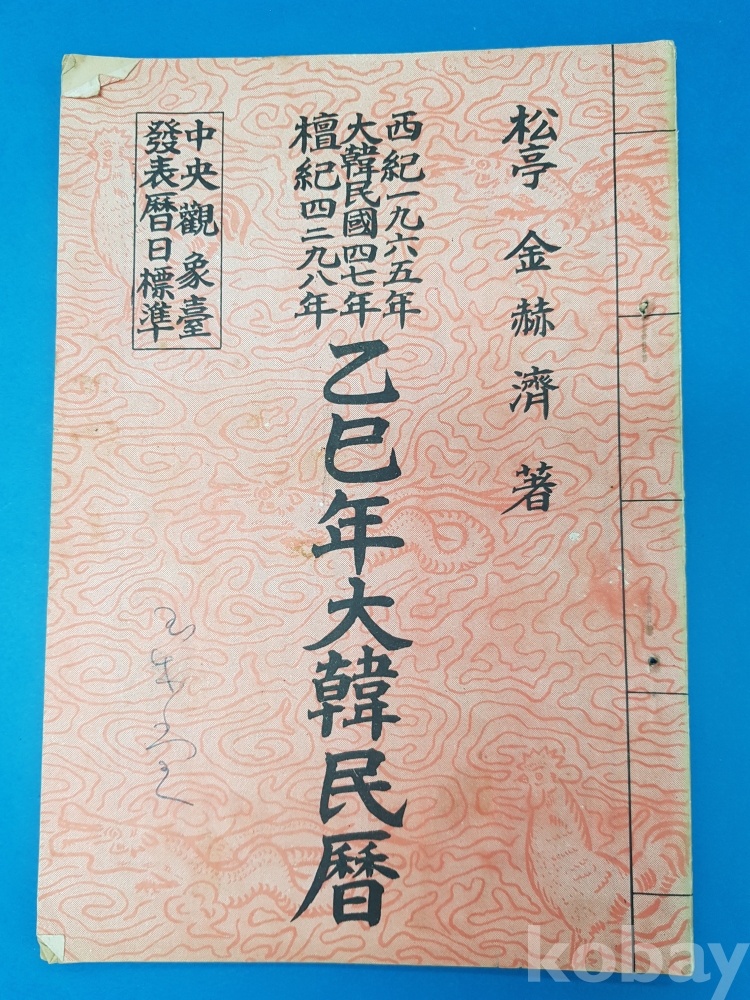 松亭 金赫濟 著
西紀一九六五年
大韓民國四七年
檀紀四二九八年
乙巳年大韓民曆
中央觀象臺
發表曆日標準
kobay